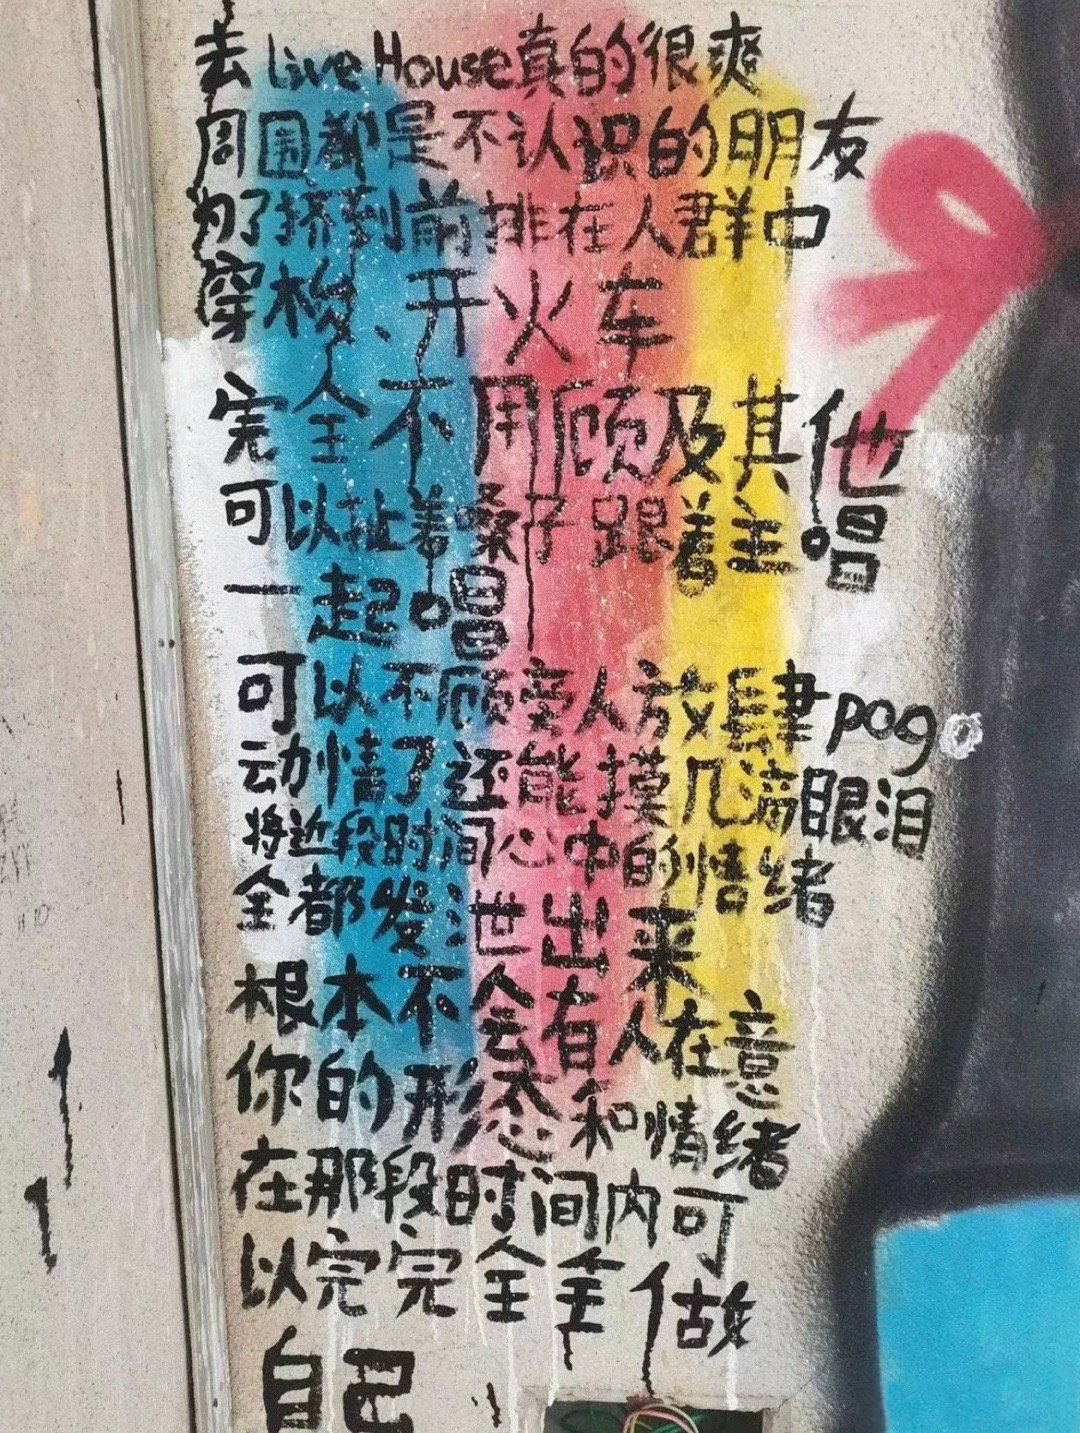 去live House真的很爽
周围都是不认识的朋友
为了挤到前排在人群中
穿梭、开火车
完全不用顾及其他
可以扯着嗓子跟着主唱
一起唱
可以不顾旁人放肆pogo
动情了还能摸几滴眼泪
将近段时间心中的情绪
全都发泄出来
根本不会有人在意
你的形态和情绪
在那段时间内可
以完完全全做
自己